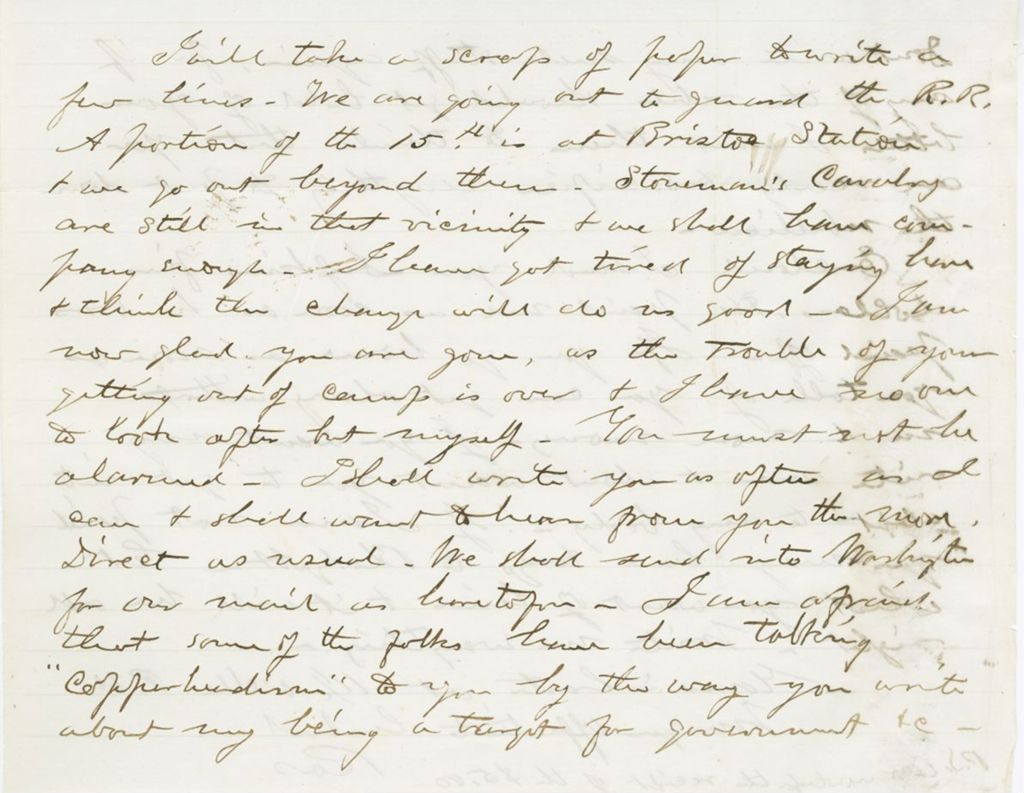 I will take a scrap of paper to write a
few lines - We are going out to guard the R.R.
A portion of the 15th is at Bristoe Station
& we go out beyond them - Stoneman's Cavalry
are still in that vicinity & we shall have com-
pany enough - I have got tired of staying here
& think the change will do us good - I am
now glad you are gone, as the trouble of your
getting out of camp is over & I have no one
to look after but myself - You must not be
alarmed - I shall write you as often as I
can & shall want to hear from you the more.
Direct as usual - We shall send into Washington
for our mail as heretofore - I am afraid
that some of the folks have been talking
"Copperheadism" to you by the way you write
about my being a target for government &c -